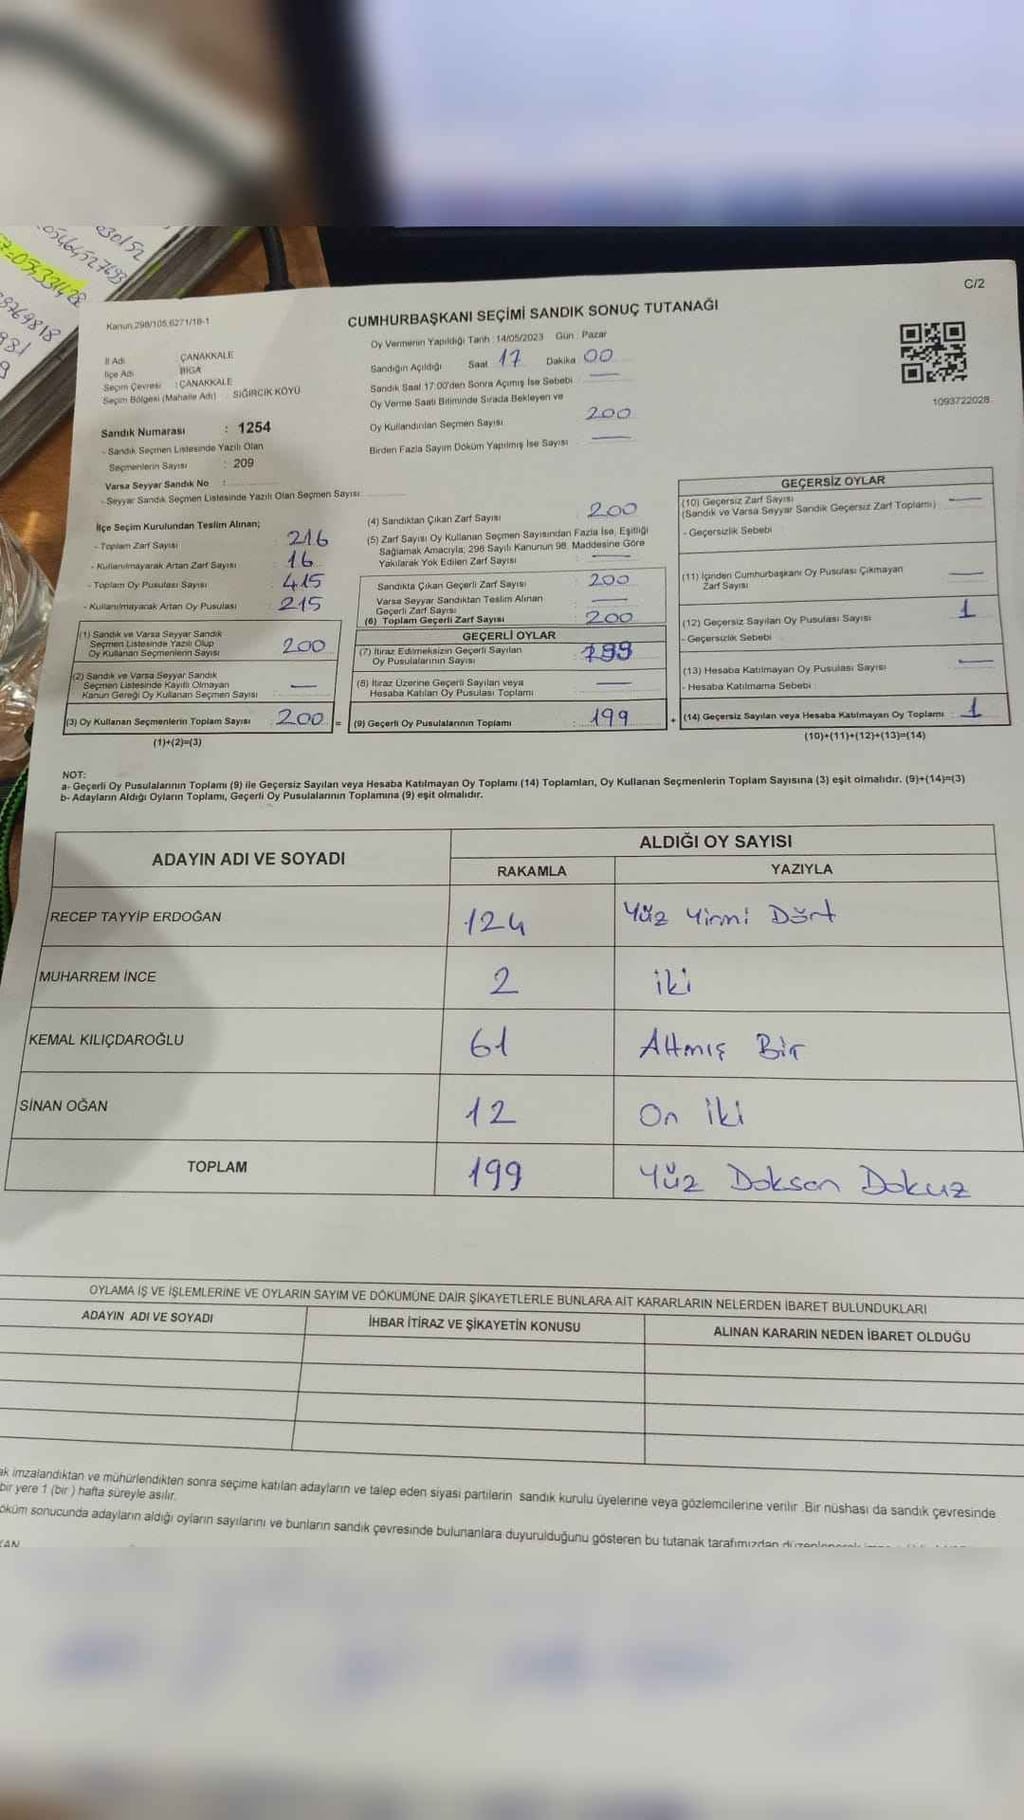 C/2
Kanun 298/105,6271/18-1
CUMHURBAŞKANI SEÇİMİ SANDIK SONUÇ TUTANAĞI
Oy Vermenin Yapıldığı Tarih : 14/05/2023 Gün : Pazar
İl Adı : ÇANAKKALE
İlçe Adı : BİGA
Seçim Çevresi : ÇANAKKALE
Seçim Bölgesi (Mahalle Adı) : SIĞIRCIK KÖYÜ
Sandık Numarası : 1254
- Sandık Seçmen Listesinde Yazılı Olan
Seçmenlerin Sayısı : 209
Varsa Seyyar Sandık No :
- Seyyar Sandık Seçmen Listesinde Yazılı Olan Seçmen Sayısı:
Sandığın Açıldığı Saat 17 Dakika 00
Sandık Saat 17:00'den Sonra Açımış İse Sebebi
Oy Verme Saati Bitiminde Sırada Bekleyen ve
Oy Kullandırılan Seçmen Sayısı 200
Birden Fazla Sayım Döküm Yapılmış İse Sayısı
1093722028
İlçe Seçim Kurulundan Teslim Alınan;
- Toplam Zarf Sayısı 216
- Kullanılmayarak Artan Zarf Sayısı 16
- Toplam Oy Pusulası Sayısı 415
- Kullanılmayarak Artan Oy Pusulası 215
(1) Sandık ve Varsa Seyyar Sandık
Seçmen Listesinde Yazılı Olup
Oy Kullanan Seçmenlerin Sayısı 200
(2) Sandık ve Varsa Seyyar Sandık
Seçmen Listesinde Kayıtlı Olmayan
Kanun Gereği Oy Kullanan Seçmen Sayısı
(3) Oy Kullanan Seçmenlerin Toplam Sayısı : 200 =
(1)+(2)=(3)
(4) Sandıktan Çıkan Zarf Sayısı 200
(5) Zarf Sayısı Oy Kullanan Seçmen Sayısından Fazla İse, Eşitliği
Sağlamak Amacıyla; 298 Sayılı Kanunun 98. Maddesine Göre
Yakılarak Yok Edilen Zarf Sayısı
Sandıkta Çıkan Geçerli Zarf Sayısı 200
Varsa Seyyar Sandıktan Teslim Alınan
Geçerli Zarf Sayısı
(6) Toplam Geçerli Zarf Sayısı 200
GEÇERLİ OYLAR
(7) İtiraz Edilmeksizin Geçerli Sayılan
Oy Pusulalarının Sayısı 199
(8) İtiraz Üzerine Geçerli Sayılan veya
Hesaba Katılan Oy Pusulası Toplamı
(9) Geçerli Oy Pusulalarının Toplamı : 199 +
GEÇERSİZ OYLAR
(10) Geçersiz Zarf Sayısı
(Sandık ve Varsa Seyyar Sandık Geçersiz Zarf Toplamı)
- Geçersizlik Sebebi
(11) İçinden Cumhurbaşkanı Oy Pusulası Çıkmayan
Zarf Sayısı
(12) Geçersiz Sayılan Oy Pusulası Sayısı 1
- Geçersizlik Sebebi
(13) Hesaba Katılmayan Oy Pusulası Sayısı
- Hesaba Katılmama Sebebi
(14) Geçersiz Sayılan veya Hesaba Katılmayan Oy Toplamı : 1
(10)+(11)+(12)+(13)=(14)
NOT:
a- Geçerli Oy Pusulalarının Toplamı (9) ile Geçersiz Sayılan veya Hesaba Katılmayan Oy Toplamı (14) Toplamları, Oy Kullanan Seçmenlerin Toplam Sayısına (3) eşit olmalıdır. (9)+(14)=(3)
b- Adayların Aldığı Oyların Toplamı, Geçerli Oy Pusulalarının Toplamına (9) eşit olmalıdır.
ADAYIN ADI VE SOYADI
ALDIĞI OY SAYISI
RAKAMLA YAZIYLA
RECEP TAYYİP ERDOĞAN 124 Yüz Yirmi Dört
MUHARREM İNCE 2 iki
KEMAL KILIÇDAROĞLU 61 Altmış Bir
SİNAN OĞAN 12 On iki
TOPLAM 199 Yüz Doksan Dokuz
OYLAMA İŞ VE İŞLEMLERİNE VE OYLARIN SAYIM VE DÖKÜMÜNE DAİR ŞİKAYETLERLE BUNLARA AİT KARARLARIN NELERDEN İBARET BULUNDUKLARI
ADAYIN ADI VE SOYADI İHBAR İTİRAZ VE ŞİKAYETİN KONUSU ALINAN KARARIN NEDEN İBARET OLDUĞU
imzalandıktan ve mühürlendikten sonra seçime katılan adayların ve talep eden siyasi partilerin sandık kurulu üyelerine veya gözlemcilerine verilir. Bir nüshası da sandık çevresinde
bir yere 1 (bir) hafta süreyle asılır.
sonucunda adayların aldığı oyların sayılarını ve bunların sandık çevresinde bulunanlara duyurulduğunu gösteren bu tutanak tarafımızdan